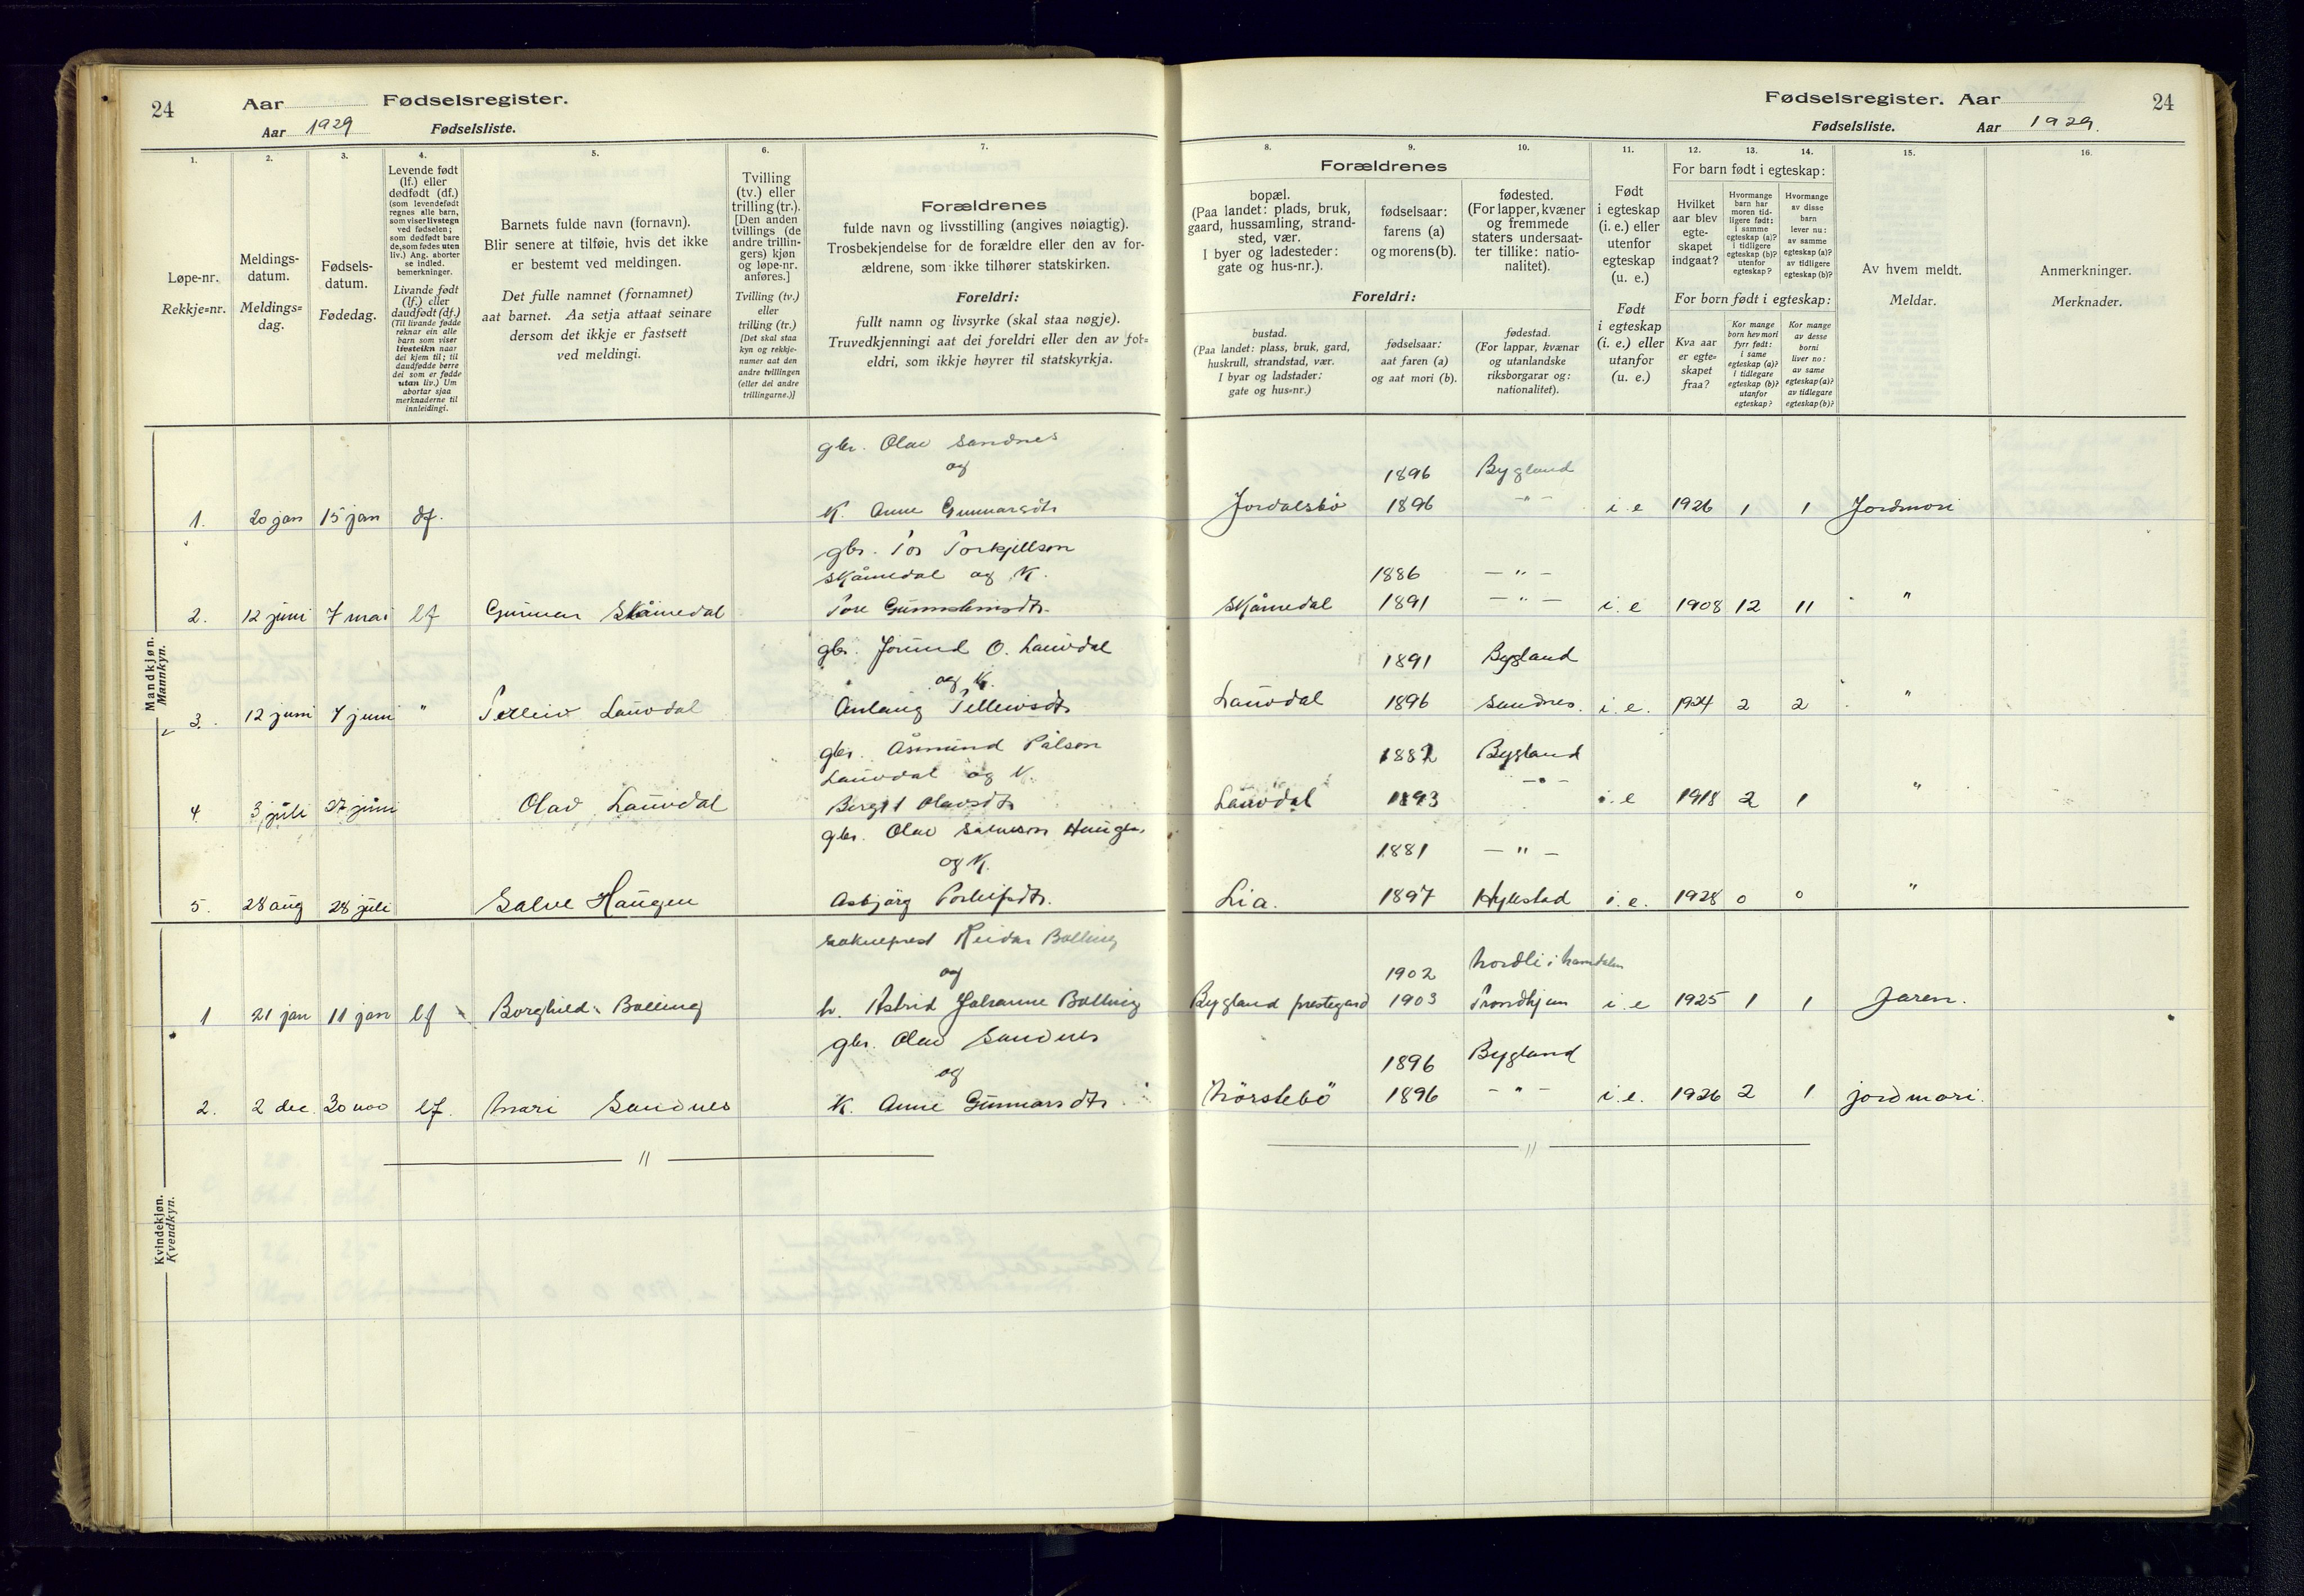 24
Aar Fødselsregister.
Aar 1929 Fødselsliste.
1.
2.
3.
4.
5.
6.
7.
Løpe-nr.
Rekkje-nr.
Meldings-
datum.
Meldings-
dag.
Fødsels-
datum.
Fødedag.
Levende født
(lf.) eller
dødfødt (df.)
(som levendefødt
regnes alle barn,
som viser livstegn
ved fødselen;
som dødfødt bare
de, som fødes uten
liv.) Ang. aborter
se indled.
bemerkninger.
Livande født
(lf.) eller
daudfødt (df.)
(Til livande fødde
reknar ein alle
barn som viser
livsteikn naar
dei kjem til; til
daudfødde berre
dei som er fødde
utan liv.) Um
abortar sjaa
merknaderne til
innleidingi.
Barnets fulde navn (fornavn).
Blir senere at tilføie, hvis det ikke
er bestemt ved meldingen.
Det fulle namnet (fornamnet)
aat barnet. Aa setja attaat seinare
dersom det ikkje er fastsett
ved meldingi.
Tvilling
(tv.) eller
trilling (tr.).
[Den anden
tvillings (de
andre trillin-
gers) kjøn
og løpe-nr.
anføres.]
Tvilling (tv.)
eller
trilling (tr.)
[Det skal staa
kyn og rekkje-
numer aat den
andre tvillingen
(eller dei andre
trillingarne.)]
Forældrenes
fulde navn og livsstilling (angives nøiagtig).
Trosbekjendelse for de forældre eller den av for-
ældrene, som ikke tilhører statskirken.
Foreldri:
fullt namn og livsyrke (skal staa nøgje).
Truvedkjenningi aat dei foreldri eller den av for-
eldri, som ikkje høyrer til statskyrkja.
Mandkjøn.
Mannkyn.
gbr. Olav Sandnes
og
1. 20 jan 15 jan df. K. Anne Gunnarsdtr
gbr. Tor Torkjellson
Skåmedal og K.
2. 12 juni 7 mai lf Gunnar Skåmedal Tore Gunnsteinsdtr.
gbr. Jorund O. Lauvdal
og K.
3. 12 juni 7 juni " Telleiv Lauvdal Anlaug Telleivsdtr
gbr. Åsmund Pålson
Lauvdal og K.
4 3 juli 27 juni Olav Lauvdal Bergit Olavsdtr
gbr. Olav Salveson Haugen
og K.
5. 28 aug 28 juli Salve Haugen Asbjörg Torleifsdtr.
Kvindekjøn.
Kvendkyn.
sokneprest Reidar Bolling
og
1 21 jan 11 jan lf Borghild Bolling h. Astrid Johanne Bolling
gbr. Olav Sandnes
og
2. 2 dec. 30 nov lf. Mari Sandnes K. Anne Gunnarsdtr
"
Fødselsregister. Aar
24
Fødselsliste. Aar 1929.
8.
9.
10.
11.
12.
13.
14.
15.
16.
Forældrenes
bopæl.
(Paa landet: plads, bruk,
gaard, hussamling, strand-
sted, vær.
I byer og ladesteder:
gate og hus-nr.).
fødselsaar:
farens (a)
og morens (b).
fødested.
(For lapper, kvæner
og fremmede
staters undersaat-
ter tillike: natio-
nalitet).
Foreldri:
bustad.
(Paa landet: plass, bruk, gard,
huskrull, strandstad, vær.
I byar og ladstader:
gate og hus-nr.)
fødselsaar:
aat faren (a)
og aat mori (b).
fødestad.
(For lappar, kvænar
og utanlandske
riksborgarar og:
nationalitet).
Født
i egteskap
(i. e.) eller
utenfor
egteskap
(u. e.)
Født
i egteskap
(i. e.) eller
utanfor
(u. e.)
For barn født i egteskap:
Hvilket
aar blev
egte-
skapet
indgaat?
Hvormange
barn har
moren tid-
ligere født:
i samme
egteskap (a)?
i tidligere
egteskap (b)?
utenfor
egteskap?
Hvormange
av disse
barn
lever nu:
av samme
egteskap (a)?
av tidligere
egteskap (b)?
For born født i egteskap:
Kva aar
er egte-
skapet
fraa?
Kor mange
born hev mori
fyrr født:
i same
egteskap (a)?
i tidlegare
egteskap (b)?
utanfor
egteskap?
Kor mange
av desse
borni
liver no:
av same
egteskap (a)?
av tidlegare
egteskap (b)?
Av hvem meldt.
Meldar.
Anmerkninger.
Merknader.
1896 Bygland
Jordalsbö 1896 -"- i. e 1926 1 1 Jordmori
1886 -"-
Skåmedal 1891 -"- i. e 1908 12 11 "
1891 Bygland
Lauvdal 1896 Sandnes. i. e. 1924 2 2 "
1882 Bygland
-"-
Lauvdal 1893 i. e 1918 2 1 "
1881 -"-
Lia. 1897 Hylestad i. e. 1928 0 0 "
1902 Nordli i Namdalen
Bygland prestegard 1903 Trondhjem i. e 1925 1 1 Faren.
1896 Bygland
Nörstebö 1896 -"- i. e. 1926 2 1 jordmori.
"